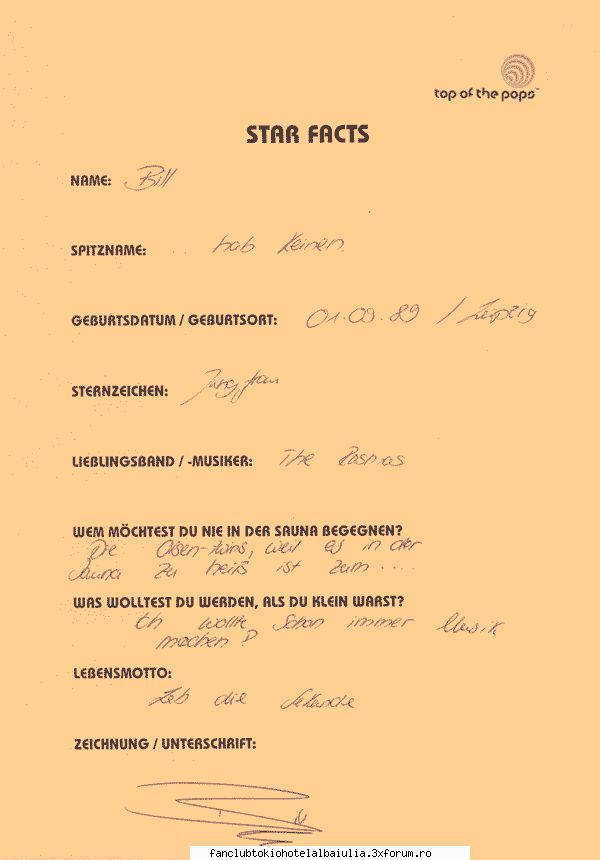 top of the pops™
STAR FACTS
NAME: Bill
SPITZNAME: hab keinen.
GEBURTSDATUM / GEBURTSORT: 01.09.89 / Leipzig
STERNZEICHEN: Jungfrau
LIEBLINGSBAND / -MUSIKER: The Rasmas
WEM MÖCHTEST DU NIE IN DER SAUNA BEGEGNEN?
Die Olsen-twins, weil es in der
Sauna zu heiß ist zum ....
WAS WOLLTEST DU WERDEN, ALS DU KLEIN WARST?
Ich wollte schon immer Musik
machen
LEBENSMOTTO:
Leb die Sekunde
ZEICHNUNG / UNTERSCHRIFT:
fanclubtokiohotelalbaiulia.3xforum.ro